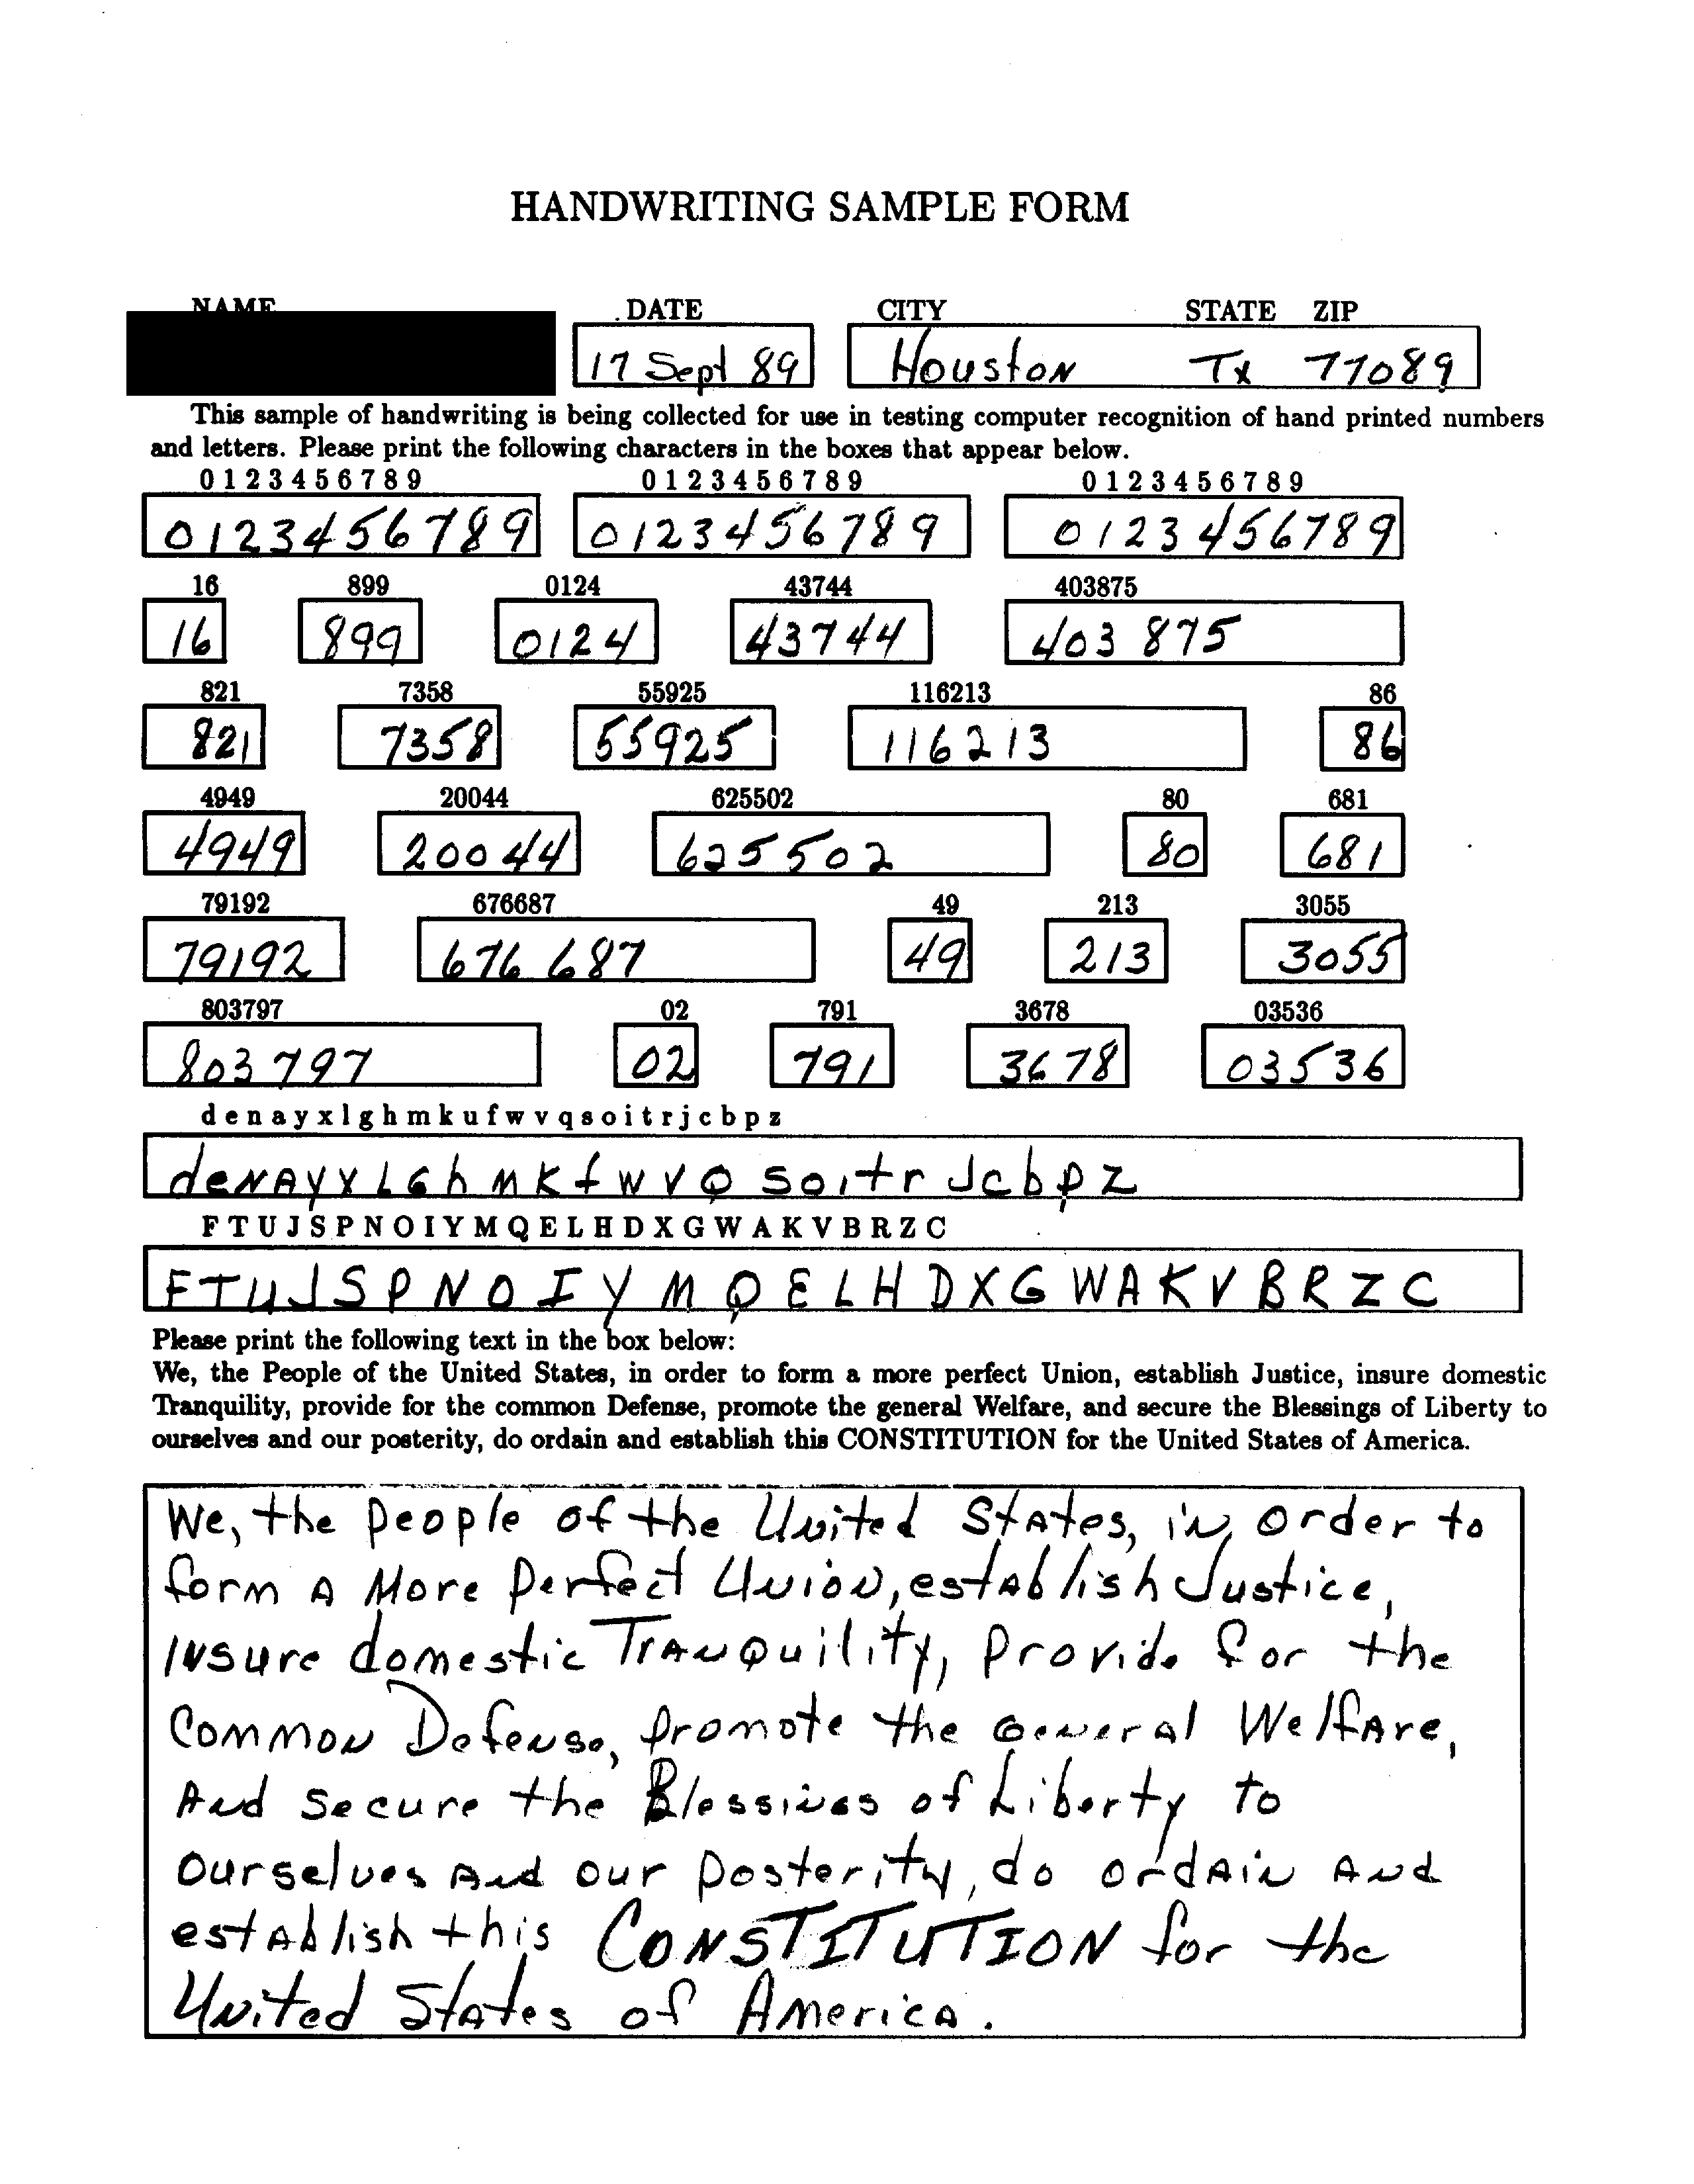 HANDWRITING SAMPLE FORM
NAME DATE CITY STATE ZIP
17 Sept 89 Houston Tx 77089
This sample of handwriting is being collected for use in testing computer recognition of hand printed numbers
and letters. Please print the following characters in the boxes that appear below.
0 1 2 3 4 5 6 7 8 9 0 1 2 3 4 5 6 7 8 9 0 1 2 3 4 5 6 7 8 9
0123456789 0123456789 0123456789
16 899 0124 43744 403875
16 899 0124 43744 403 875
821 7358 55925 116213 86
821 7358 55925 116213 86
4949 20044 625502 80 681
4949 20044 625502 80 681
79192 676687 49 213 3055
79192 676 687 49 213 3055
803797 02 791 3678 03536
803 797 02 791 3678 03536
d e n a y x l g h m k u f w v q s o i t r j c b p z
deNAyxLGhMKfwvQsoitrJcbpz
F T U J S P N O I Y M Q E L H D X G W A K V B R Z C
FTUJSPNOIYMQELHDXGWAKVBRZC
Please print the following text in the box below:
We, the People of the United States, in order to form a more perfect Union, establish Justice, insure domestic
Tranquility, provide for the common Defense, promote the general Welfare, and secure the Blessings of Liberty to
ourselves and our posterity, do ordain and establish this CONSTITUTION for the United States of America.
We, the People of the United States, in order to
form A More Perfect Union, establish Justice,
insure domestic Tranquility, Provide for the
Common Defense, Promote the General Welfare,
And secure the Blessings of Liberty to
Ourselves And our Posterity, do ordain And
establish this CONSTITUTION for the
United States of America.